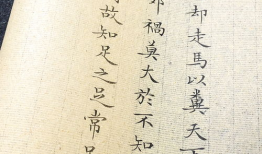 却走馬以糞天
禍莫大於不知
故知足之足常